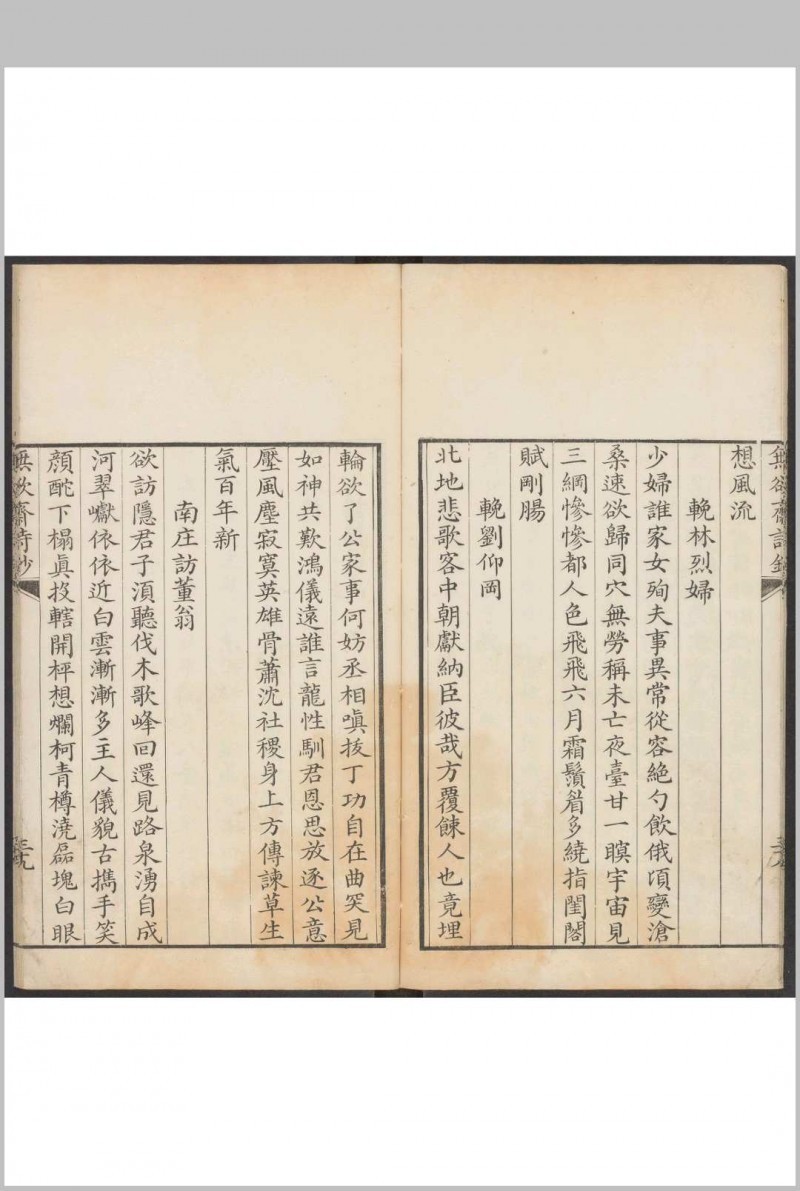 無欲齋詩鈔
想風流
輓林烈婦
少婦誰家女殉夫事異常從容絶勺飲俄頃變滄
桑速欲歸同穴無勞稱未亡夜臺甘一瞑宇宙見
三綱慘慘都人色飛飛六月霜鬚眉多繞指閨閣
賦剛腸
輓劉仰岡
北地悲歌客中朝獻納臣彼哉方覆餗人也竟埋
輪欲了公家事何妨丞相嗔拔丁功自在曲突見
如神共歎鴻儀遠誰言龍性馴君恩思放逐公意
壓風塵寂寞英雄骨蕭沈社稷身上方傳諫草生
氣百年新
南庄訪董翁
欲訪隱君子須聽伐木歌峰回還見路泉湧自成
河翠巘依依近白雲漸漸多主人儀貌古攜手笑
顏酡下榻眞投轄開枰想爛柯青樽澆磊塊白眼
無欲齋詩鈔
三九